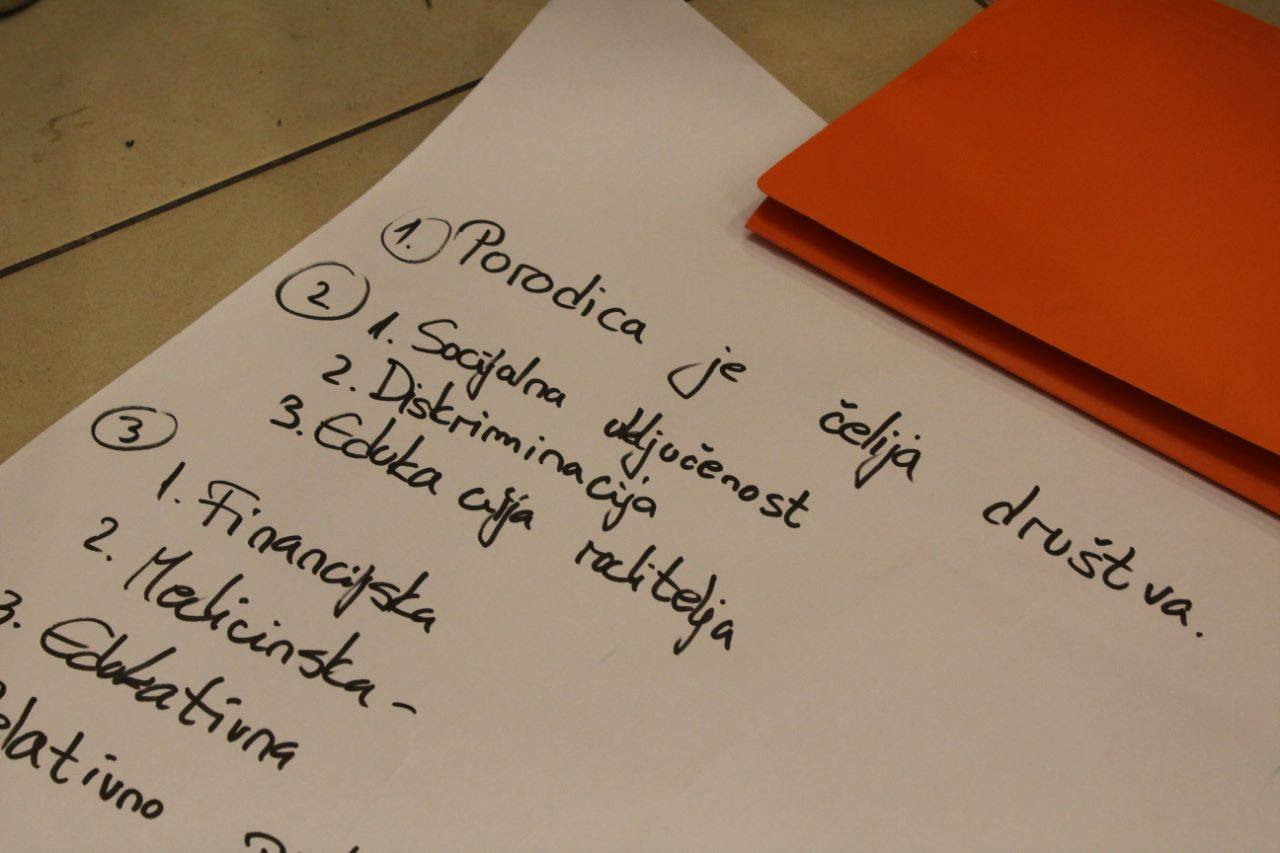 1. Porodica je čelija društva.
2 1. Socijalna uključenost
2. Diskriminacija
3. Edukacija roditelja
3
1. Financijska
2. Medicinska -
3. Edukativna